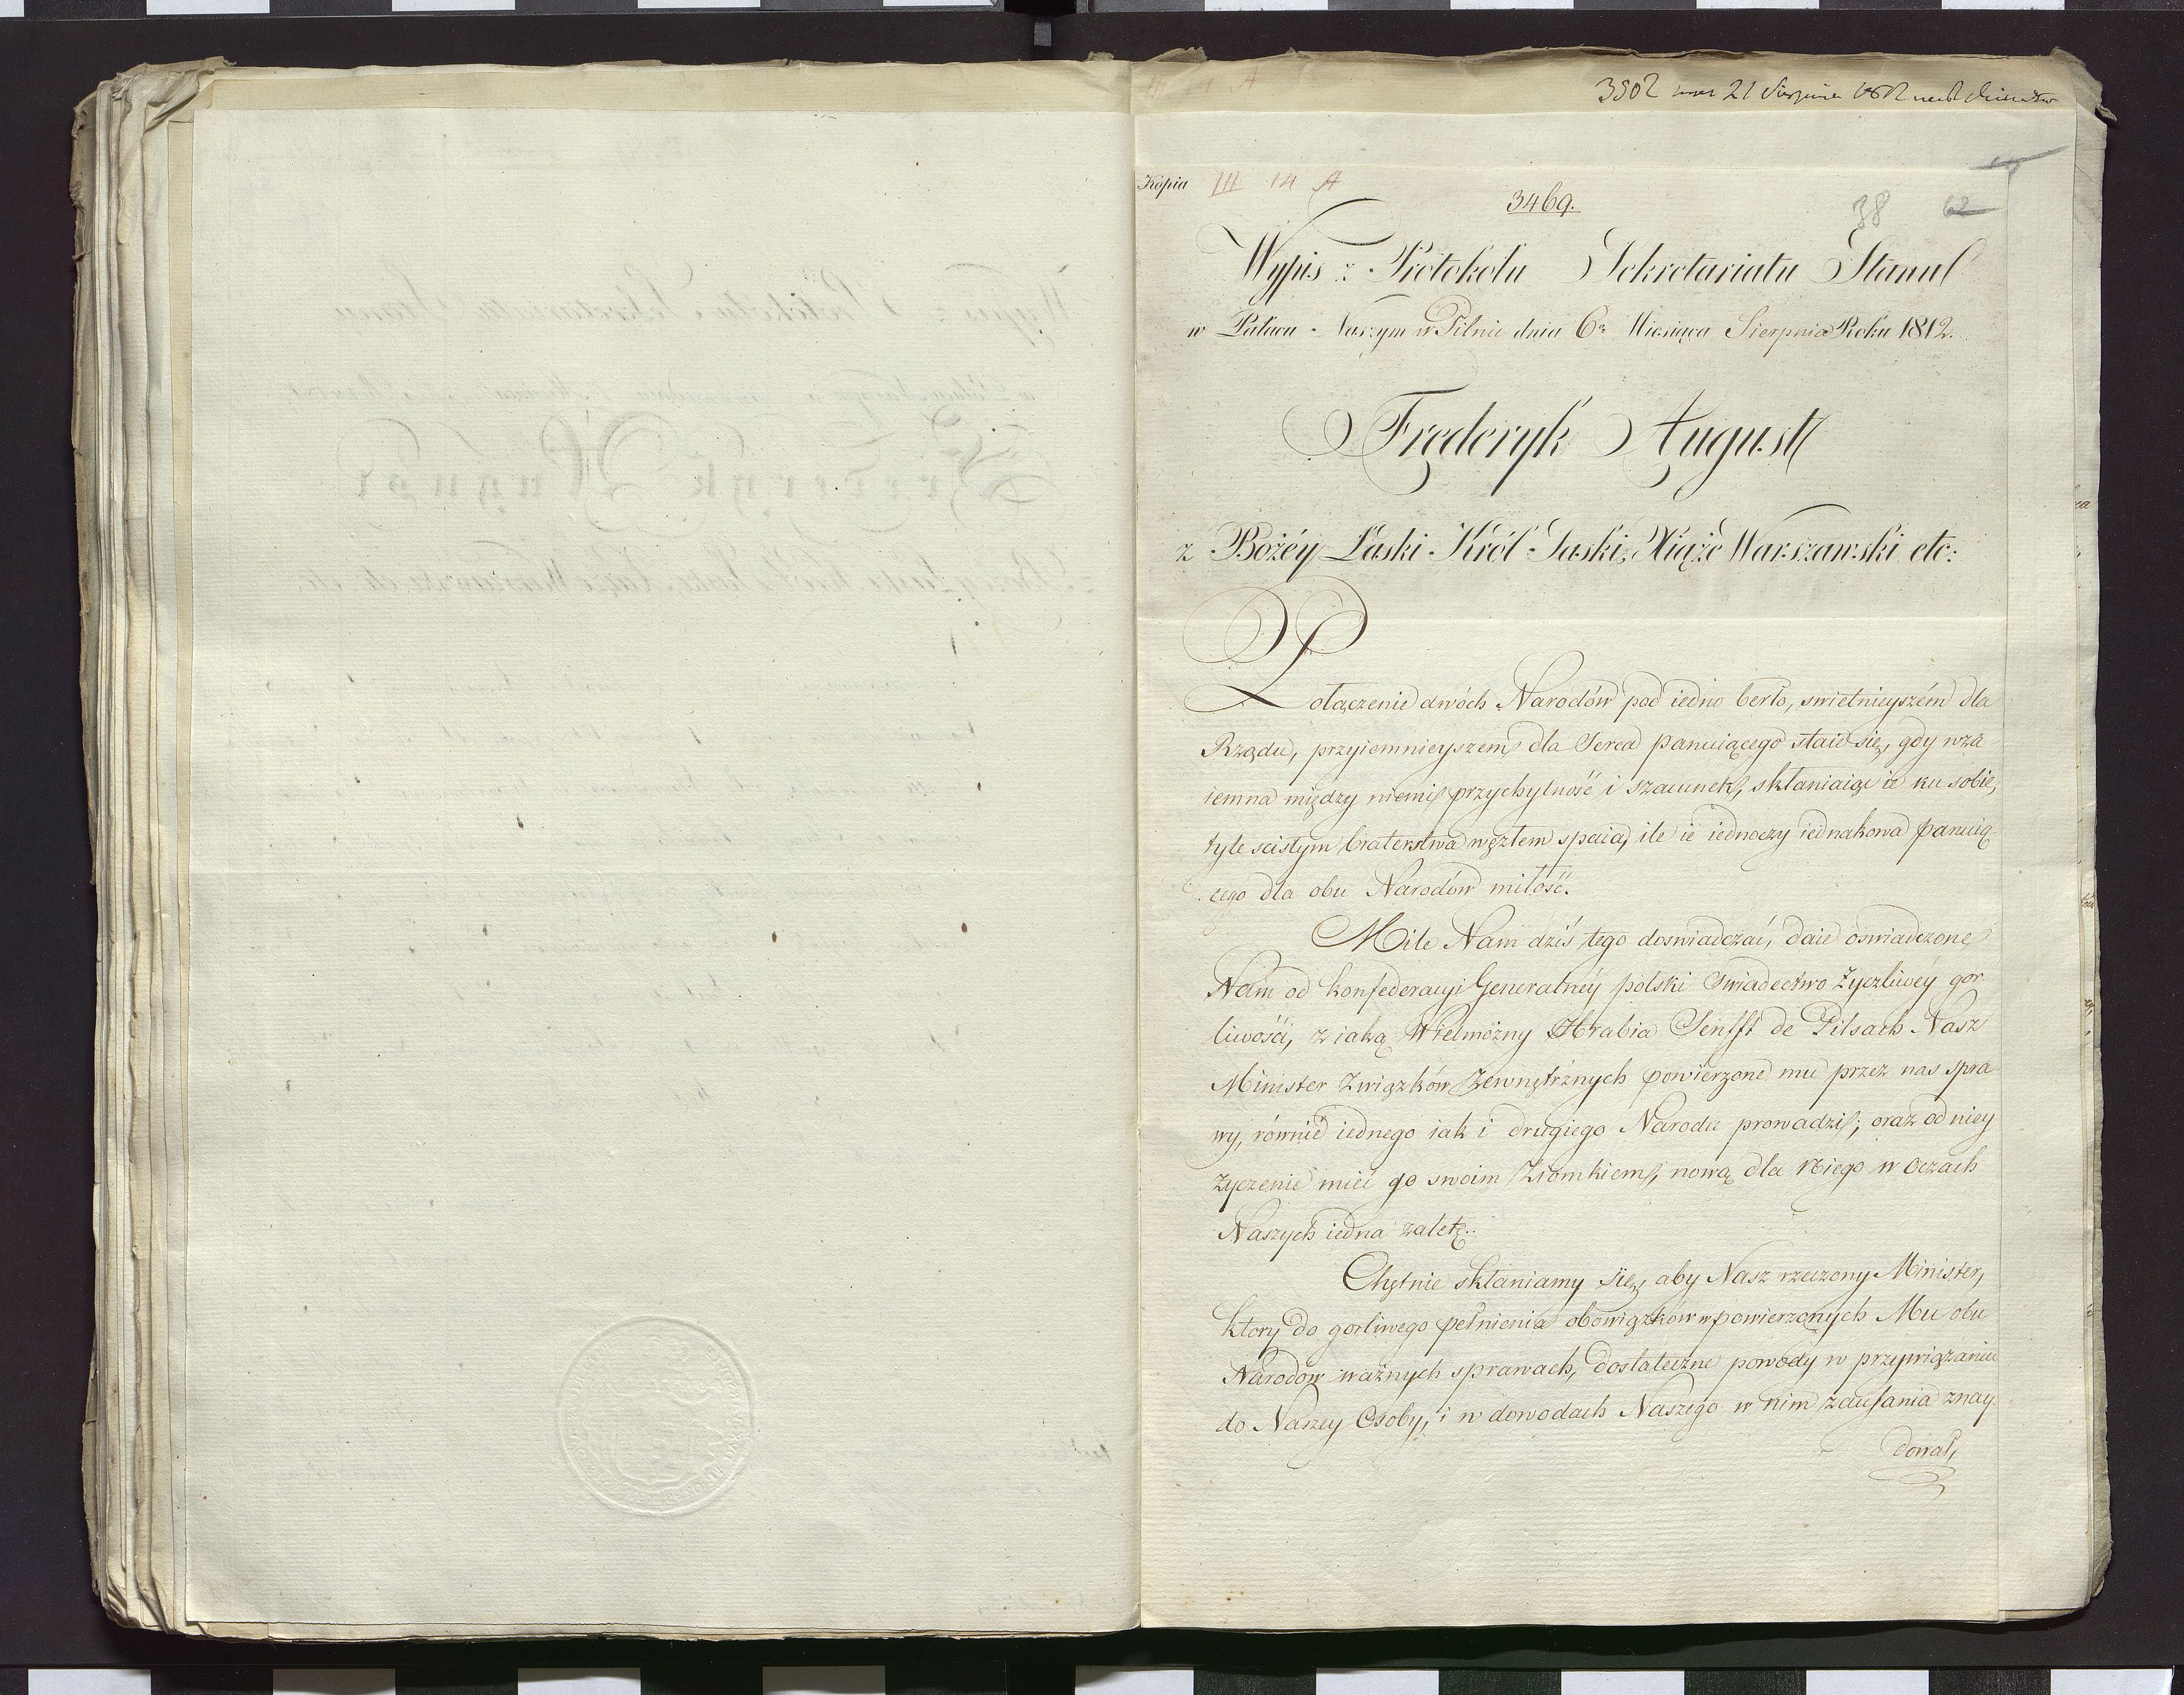 3502 21 Sierpnia 1812
Kopia III 14 A
3469.
38 62
Wypis z Protokołu Sekretariatu Stanu
w Pałacu Naszym w Pilnie dnia 6º Miesiąca Sierpnia Roku 1812.
Fręderyk August
z Bożéy Łaski Król Saski, Xiążę Warszawski etc:
Połączenie dwóch Narodów pod iedno berło, swietnieyszém dla
Rządu, przyiemnieyszem dla Serca panuiącego staie się, gdy wza-
iemna między niemi przychylność i szacunek, skłaniaiąc ie ku sobie,
tyle scisłym braterstwa węzłem spaia, ile ie iednoczy iednakowa panuią-
cego dla obu Narodów miłość.
Miło Nam dziś tego doswiadczać, daie oswiadczone
Nam od Konfederacyi Generalnéy polski Swiadectwo życzliwéy gor-
liwości, z iaką Wielmożny Hrabia Senfft de Pilsach Nasz
Minister Związków Zewnętrznych powierzone mu przez nas spra-
wy, równie iednego iak i drugiego Narodu prowadzi; oraz od niey
życzenie mieć go swoim Ziomkiem, nową dla Niego w Oczach
Naszych iedna zaletę.
Chętnie skłaniamy się, aby Nasz rzeczony Minister,
ktory do gorliwego pełnienia obowiązków w powierzonych Mu obu
Narodow ważnych sprawach, dostateczne powody w przywiązaniu
do Naszey Osoby, i w dowodach Naszego w nim zaufania znay-
dował,